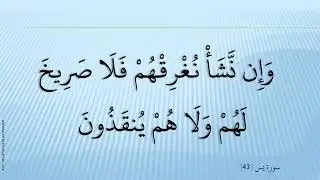 وَإِن نَّشَأْ نُغْرِقْهُمْ فَلَا صَرِيخَ
لَهُمْ وَلَا هُمْ يُنقَذُونَ
سورة يس (43)